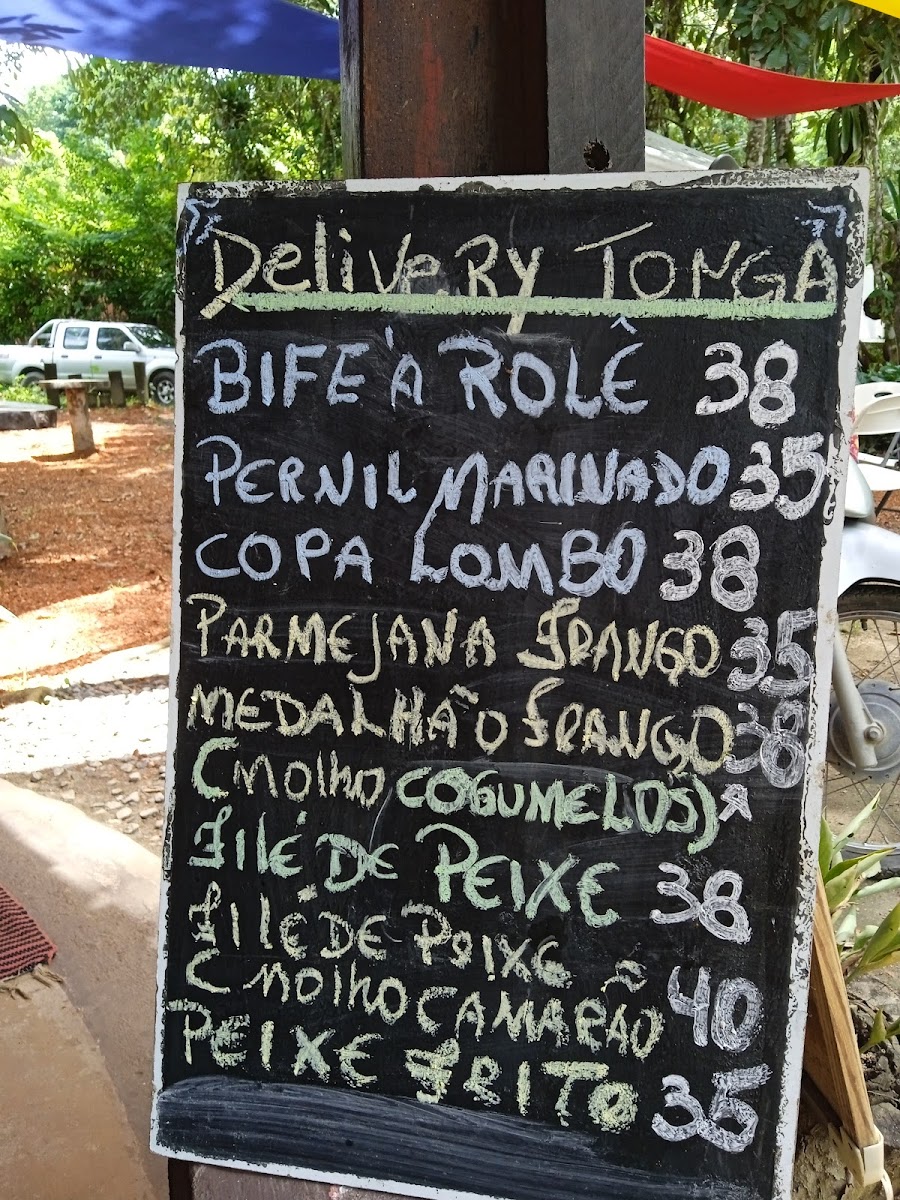 Delivery TONGA
BIFE À ROLÊ 38
PERNIL MARINADO 35
COPA LOMBO 38
PARMEJANA FRANGO 35
MEDALHÃO FRANGO 38
C MOLHO COGUMELOS)
FILÉ DE PEIXE 38
FILÉ DE PEIXE
C MOLHO CAMARÃO 40
PEIXE FRITO 35